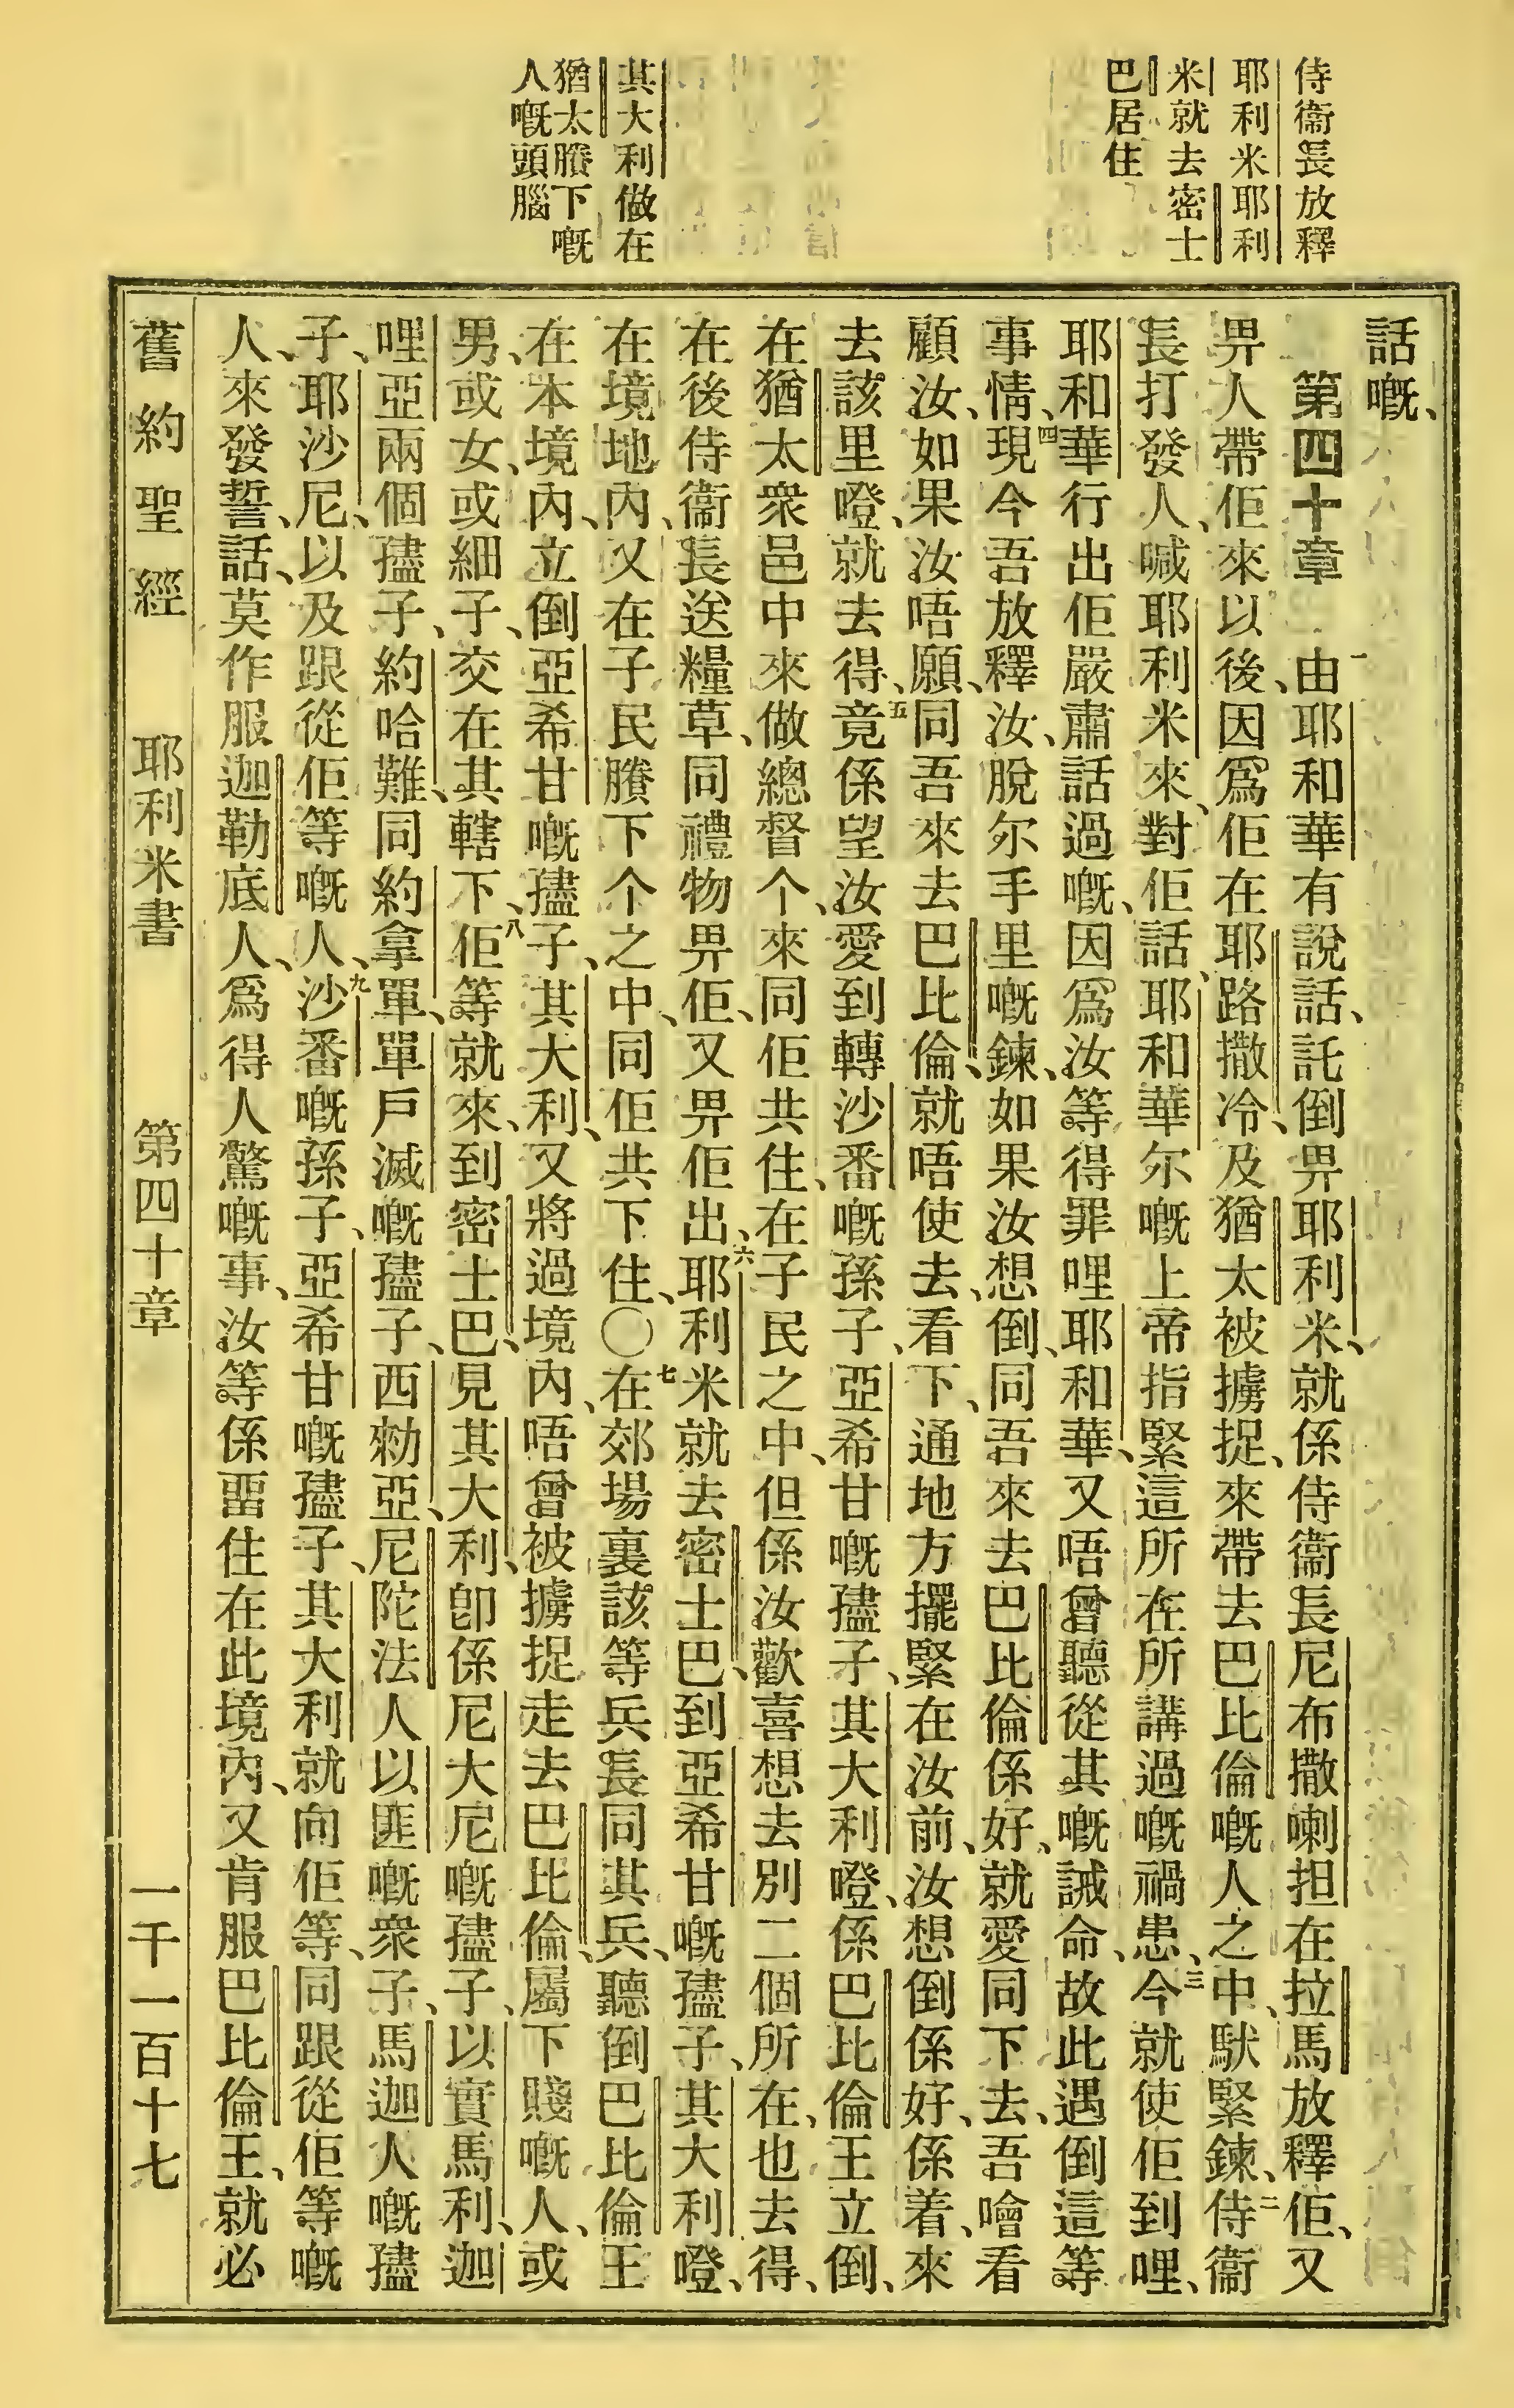 侍衞長放釋
耶利米耶利
米就去密士
巴居住
其大利做在
猶太賸下嘅
人嘅頭腦
話嘅、
第四十章 一由耶和華有說話、託倒畀耶利米、就係侍衞長尼布撒喇担在拉馬放釋佢、又
畀人帶佢來以後、因爲佢在耶路撒冷、及猶太被擄捉、來帶去巴比倫嘅人之中、猒緊鍊、二侍衞
長打發人、喊耶利米來、對佢話、耶和華尔嘅上帝指緊這所在所講過嘅禍患、三今就使佢到哩、
耶和華行出佢嚴肅話過嘅、因爲汝等得罪哩耶和華、又唔曾聽從其嘅誡命、故此遇倒這等
事情、四現今吾放釋汝、脫尔手里嘅鍊、如果汝想倒、同吾來去巴比倫係好、就愛同下去、吾噲看
顧汝、如果汝唔願、同吾來去巴比倫、就唔使去、看下、通地方擺緊在汝前、汝想倒係好、係着、來
去該里嶝、就去得、五竟係望汝愛到轉沙番嘅孫子、亞希甘嘅孻子、其大利嶝、係巴比倫王立倒、
在猶太衆邑中來做總督个、來同佢共住、在子民之中、但係汝歡喜想去別二個所在、也去得、
在後侍衞長送糧草、同禮物畀佢、又畀佢出、六耶利米就去密士巴、到亞希甘嘅孻子、其大利嶝、
在境地內、又在子民賸下个之中、同佢共下住、〇七在郊場裏該等兵長同其兵、聽倒巴比倫王
在本境內、立倒亞希甘嘅孻子、其大利、又將過境內、唔曾被擄捉走去巴比倫、屬下賤嘅人、或
男、或女、或細子、交在其轄下、八佢等就來、到密士巴、見其大利、卽係尼大尼嘅孻子、以實馬利、迦
哩亞兩個孻子、約哈難、同約拿單、單戶滅嘅孻子、西勑亞、尼陀法人以匪嘅衆子、馬迦人嘅孻
子、耶沙尼、以及跟從佢等嘅人、九沙番嘅孫子、亞希甘嘅孻子、其大利就向佢等、同跟從佢等嘅
人、來發誓、話、莫作服迦勒底人、爲得人驚嘅事、汝等係畱住在此境內、又肯服巴比倫王、就必
舊約聖經 耶利米書 第四十章 一千一百十七